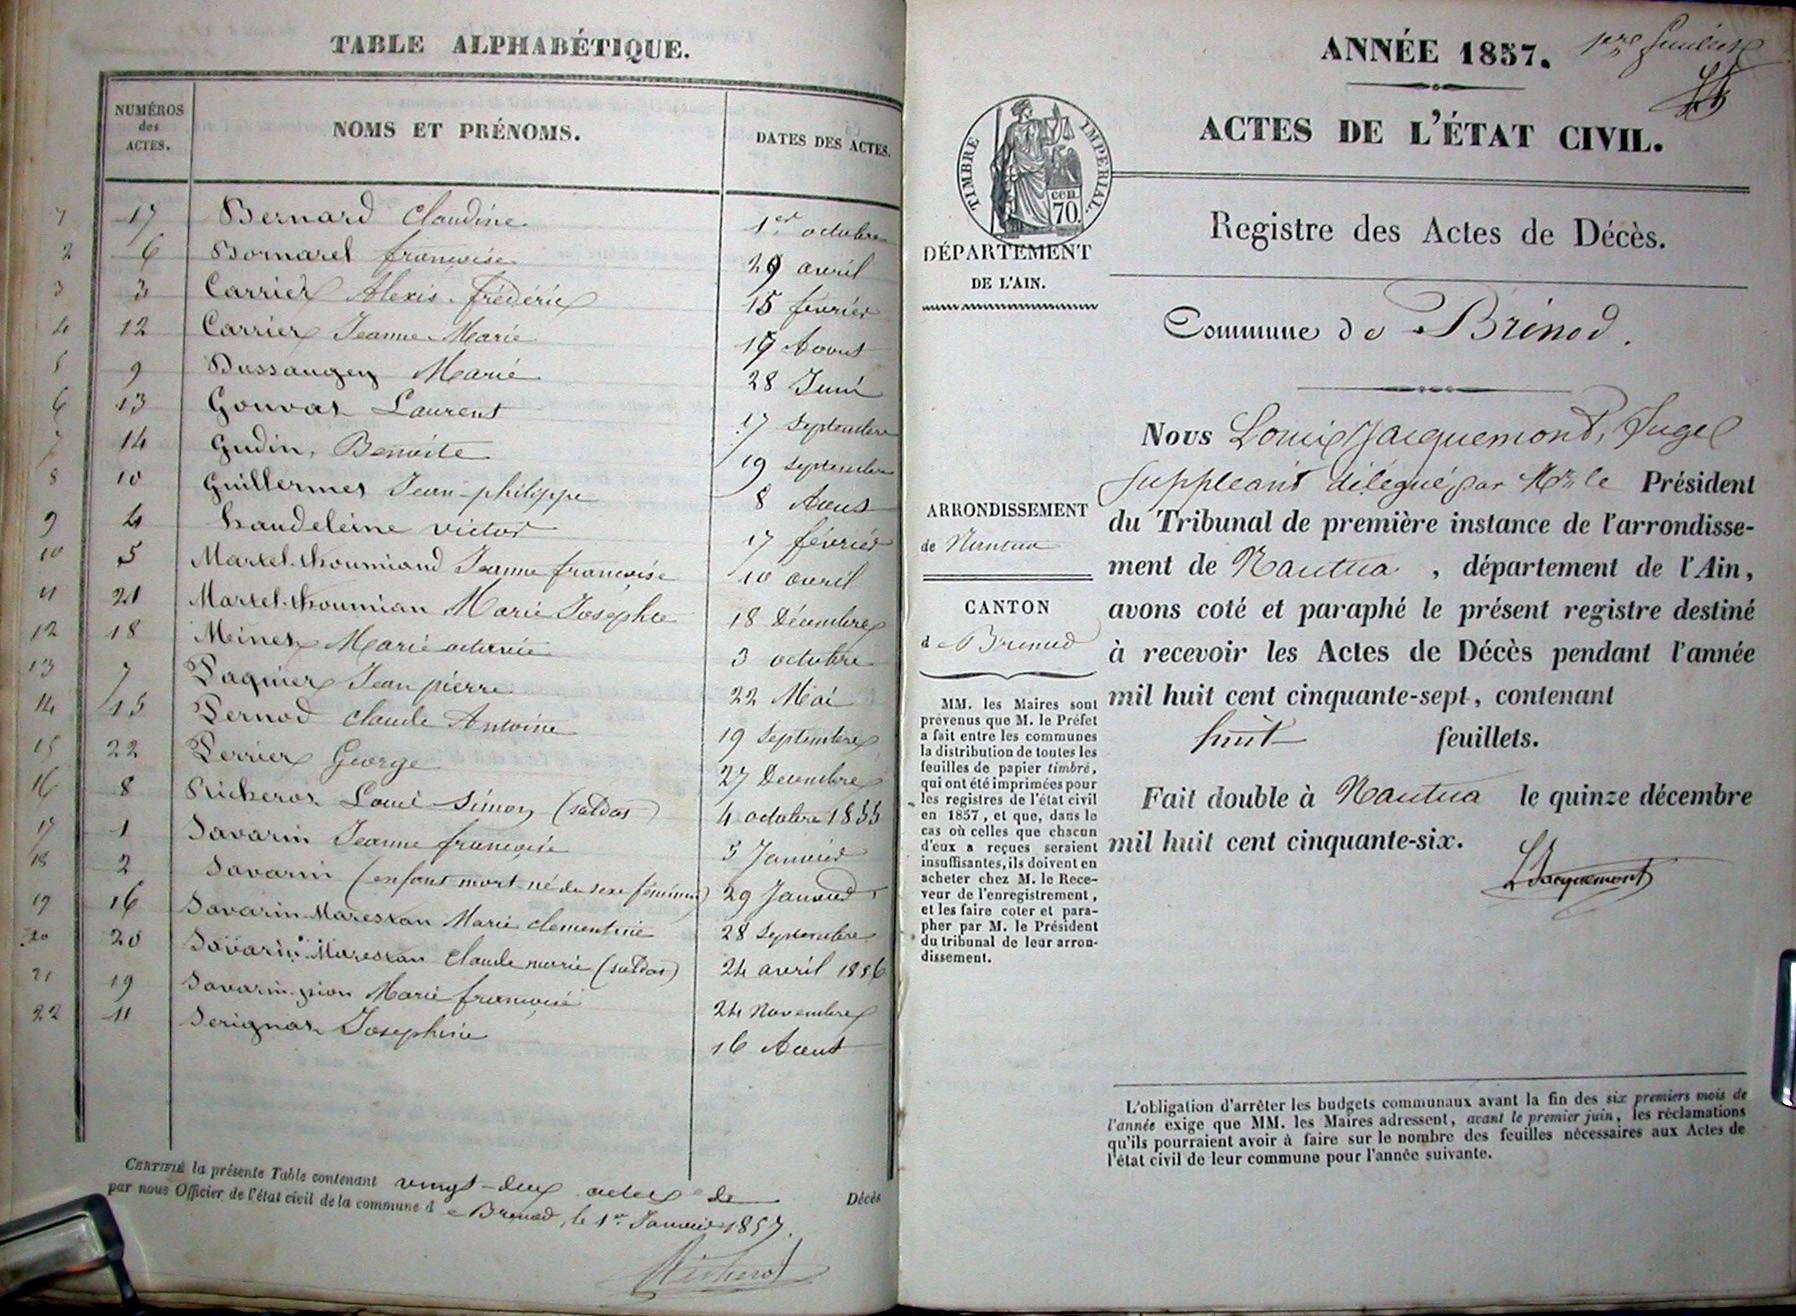 TABLE ALPHABÉTIQUE.
NUMÉROS
des
ACTES.
NOMS ET PRÉNOMS.
DATES DES ACTES.
1 17 Bernard Claudine 1er octobre
2 6 Bornarel françoise 29 avril
3 3 Carrier Alexis frédéric 15 février
4 12 Carrier Jeanne Marie 19 Aoout
5 9 Dussaugey Marie 28 Juin
6 13 Gouvat Laurent 17 Septembre
7 14 Gudin, Benoite 19 septembre
8 10 Guillermet Jean-philippe 8 Aout
9 4 victor 17 février
10 5 Martel-thoumiand Jeanne françoise 10 avril
11 21 Martel-thoumian Marie Josephte 18 Décembre
12 18 Minet Marie 3 octobre
13 7 Paquier Jean pierre 22 Mai
14 15 Pernod Claude Antoine 19 Septembre
15 22 Perrier George 27 Decembre
16 8 Richerot Loui Simon (soldat) 4 octobre 1855
17 1 Savarin Jeanne francoise 5 Janvier
18 2 Savarin (enfant mort-né du sexe féminin) 29 Janvier
19 16 Savarin-Marestan Marie clementine 28 Septembre
20 20 Savarin-Marestan Claude marie (soldat) 24 avril 1856
21 19 Savarin-pion Marie françoise 24 Novembre
22 11 Serignat Josephine 16 Aout
CERTIFIÉ la présente Table contenant vingt-deux actes de Décès
par nous Officier de l'état civil de la commune d e Brenod, le 1er Janvier 1857.
Richerot
ANNÉE 1857.
ACTES DE L'ÉTAT CIVIL.
TIMBRE IMPERIAL.
CEN.
70.
Registre des Actes de Décès.
DÉPARTEMENT
DE L'AIN.
Commune de Brénod.
ARRONDISSEMENT
de Nantua
CANTON
d e Brenod
MM. les Maires sont
prévenus que M. le Préfet
a fait entre les communes
la distribution de toutes les
feuilles de papier timbré,
qui ont été imprimées pour
les registres de l'état civil
en 1857, et que, dans le
cas où celles que chacun
d'eux a reçues seraient
insuffisantes, ils doivent en
acheter chez M. le Rece-
veur de l'enregistrement,
et les faire coter et para-
pher par M. le Président
du tribunal de leur arron-
dissement.
Nous Louis Jacquemont, Juge
suppleant délégué par Mr le Président
du Tribunal de première instance de l'arrondisse-
ment de Nantua, département de l'Ain,
avons coté et paraphé le présent registre destiné
à recevoir les Actes de Décès pendant l'année
mil huit cent cinquante-sept, contenant
huit feuillets.
Fait double à Nantua le quinze décembre
mil huit cent cinquante-six.
L Jacquemont
L'obligation d'arrêter les budgets communaux avant la fin des six premiers mois de
l'année exige que MM. les Maires adressent, avant le premier juin, les réclamations
qu'ils pourraient avoir à faire sur le nombre des feuilles nécessaires aux Actes de
l'état civil de leur commune pour l'année suivante.